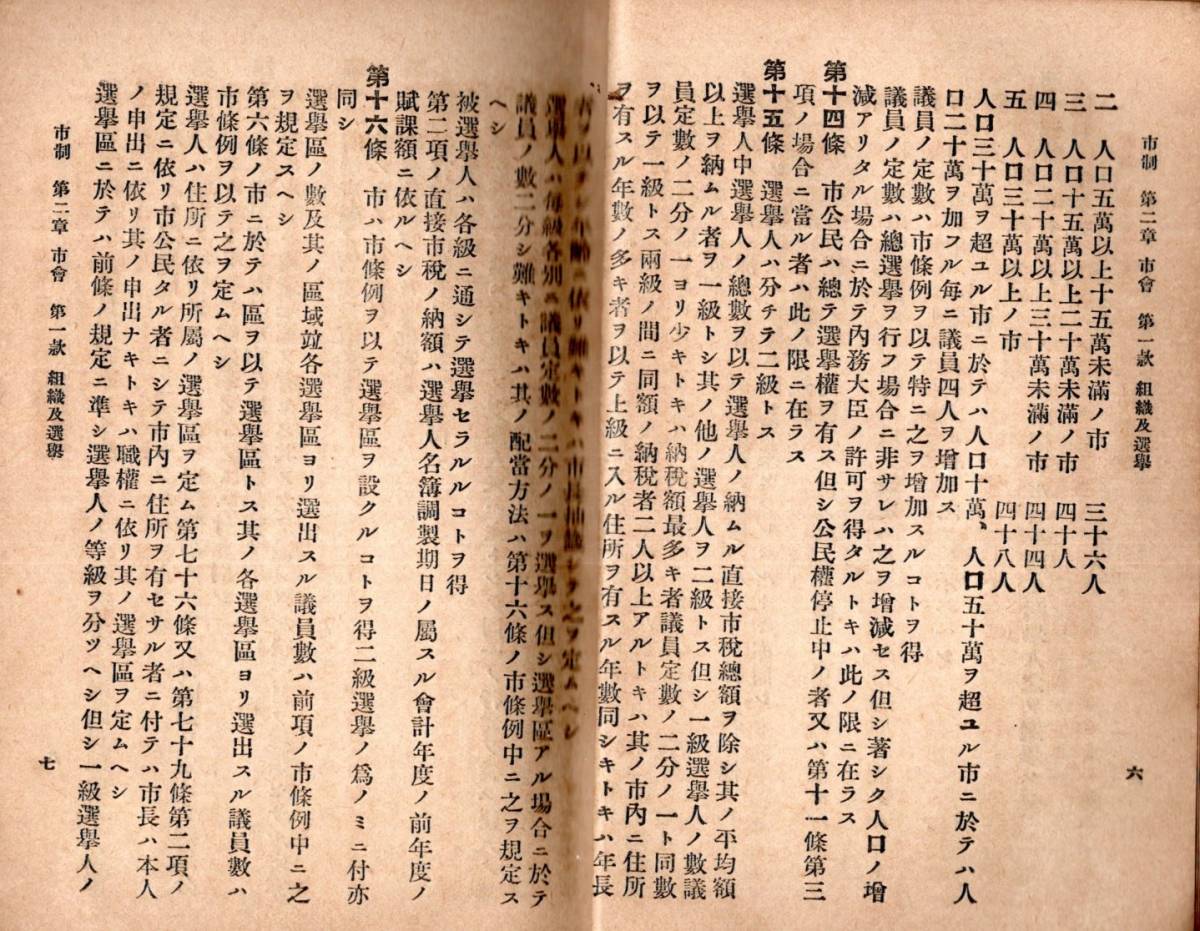 市制 第二章 市會 第一款 組織及選擧
六
二 人口五萬以上十五萬未滿ノ市 三十六人
三 人口十五萬以上二十萬未滿ノ市 四十人
四 人口二十萬以上三十萬未滿ノ市 四十四人
五 人口三十萬以上ノ市 四十八人
人口三十萬ヲ超ユル市ニ於テハ人口十萬、人口五十萬ヲ超ユル市ニ於テハ人
口二十萬ヲ加フル每ニ議員四人ヲ增加ス
議員ノ定數ハ市條例ヲ以テ特ニ之ヲ增加スルコトヲ得
議員ノ定數ハ總選擧ヲ行フ場合ニ非サレハ之ヲ增減セス但シ著シク人口ノ增
減アリタル場合ニ於テ內務大臣ノ許可ヲ得タルトキハ此ノ限ニ在ラス
第十四條 市公民ハ總テ選擧權ヲ有ス但シ公民權停止中ノ者又ハ第十一條第三
項ノ場合ニ當ル者ハ此ノ限ニ在ラス
第十五條 選擧人ハ分チテ二級トス
選擧人中選擧人ノ總數ヲ以テ選擧人ノ納ムル直接市稅總額ヲ除シ其ノ平均額
以上ヲ納ムル者ヲ一級トシ其ノ他ノ選擧人ヲ二級トス但シ一級選擧人ノ數議
員定數ノ二分ノ一ヨリ少キトキハ納稅額最多キ者議員定數ノ二分ノ一ト同數
ヲ以テ一級トス兩級ノ間ニ同額ノ納稅者二人以上アルトキハ其ノ市內ニ住所
ヲ有スル年數ノ多キ者ヲ以テ上級ニ入ル住所ヲ有スル年數同シキトキハ年長
者ヲ以テシ年齡ニ依リ難キトキハ市長抽籤シテ之ヲ定ムヘシ
選擧人ハ每級各別ニ議員定數ノ二分ノ一ヲ選擧ス但シ選擧區アル場合ニ於テ
議員ノ數二分シ難キトキハ其ノ配當方法ハ第十六條ノ市條例中ニ之ヲ規定ス
ヘシ
被選擧人ハ各級ニ通シテ選擧セラルルコトヲ得
第二項ノ直接市稅ノ納額ハ選擧人名簿調製期日ノ屬スル會計年度ノ前年度ノ
賦課額ニ依ルヘシ
第十六條 市ハ市條例ヲ以テ選擧區ヲ設クルコトヲ得二級選擧ノ爲ノミニ付亦
同シ
選擧區ノ數及其ノ區域竝各選擧區ヨリ選出スル議員數ハ前項ノ市條例中ニ之
ヲ規定スヘシ
第六條ノ市ニ於テハ區ヲ以テ選擧區トス其ノ各選擧區ヨリ選出スル議員數ハ
市條例ヲ以テ之ヲ定ムヘシ
選擧人ハ住所ニ依リ所屬ノ選擧區ヲ定ム第七十六條又ハ第七十九條第二項ノ
規定ニ依リ市公民タル者ニシテ市內ニ住所ヲ有セサル者ニ付テハ市長ハ本人
ノ申出ニ依リ其ノ申出ナキトキハ職權ニ依リ其ノ選擧區ヲ定ムヘシ
選擧區ニ於テハ前條ノ規定ニ準シ選擧人ノ等級ヲ分ツヘシ但シ一級選擧人ノ
市制 第二章 市會 第一款 組織及選擧
七